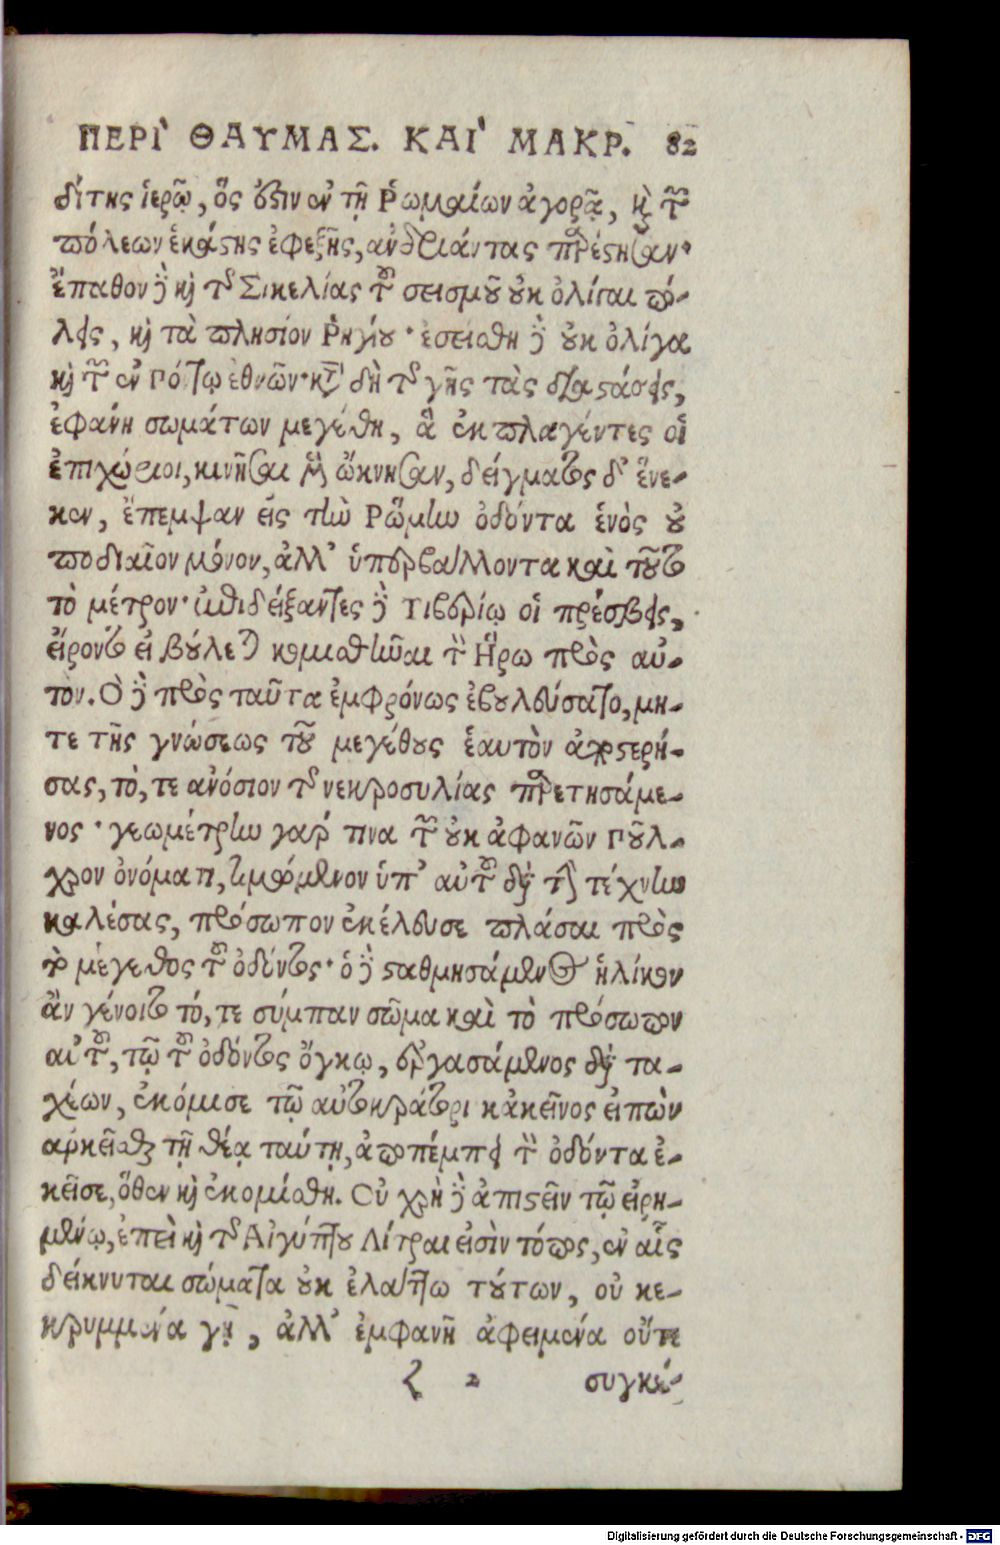 ΠΕΡΙ ΘΑΥΜΑΣ. ΚΑΙ ΜΑΚΡ. 82
δίτης ἱερῷ, ὅς ἐστιν ἐν τῇ Ῥωμαίων ἀγορᾷ, κὶ τῶν
πόλεων ἑκάστης ἐφεξῆς, ἀνδριάντας παρέστησαν·
ἔπαθον δὲ καὶ τῆς Σικελίας τοῦ σεισμοῦ οὐκ ὀλίγαι πό-
λεις, καὶ τὰ πλησίον Ῥηγίου· ἐσείσθη δὲ οὐκ ὀλίγα
καὶ τῶν ἐν Πόντῳ ἐθνῶν· κατὰ δὴ τῆς γῆς τὰς διαστάσεις,
ἐφάνη σωμάτων μεγέθη, ἃ ἐκπλαγέντες οἱ
ἐπιχώριοι, κινῆσαι μὲν ὤκνησαν, δείγματος δ' ἕνε-
κεν, ἔπεμψαν εἰς τὴν Ῥώμην ὀδόντα ἑνὸς οὐ
ποδιαῖον μόνον, ἀλλ' ὑπερβάλλοντα καὶ τοῦτο
τὸ μέτρον· ἐπιδείξαντες δὲ Τιβερίῳ οἱ πρέσβεις,
εἴροντο εἰ βούλεται κομισθῆναι τὸν Ἥρω πρὸς αὐ-
τόν. Ὁ δὲ πρὸς ταῦτα ἐμφρόνως ἐβουλεύσατο, μή-
τε τῆς γνώσεως τοῦ μεγέθους ἑαυτὸν ἀποστερή-
σας, τό, τε ἀνόσιον τῆς νεκροσυλίας παρετησάμε-
νος· γεωμέτρην γάρ τινα τῶν οὐκ ἀφανῶν Ποῦλ-
χρον ὀνόματι, τιμώμενον ὑπ' αὐτοῦ διὰ τὴν τέχνην
καλέσας, πρόσωπον ἐκέλευσε πλάσαι πρὸς
τὸ μέγεθος τοῦ ὀδόντος· ὁ δὲ σταθμησάμενος ἡλίκον
ἂν γένοιτο τό, τε σύμπαν σῶμα καὶ τὸ πρόσωπον
αὐτοῦ, τῷ τοῦ ὀδόντος ὄγκῳ, ἐργασάμενος διὰ τα-
χέων, ἐκόμισε τῷ αὐτοκράτορι κἀκεῖνος εἰπὼν
ἀρκεῖσθαι τῇ θέᾳ ταύτῃ, ἀποπέμπει τὸν ὀδόντα ἐ-
κεῖσε, ὅθεν καὶ ἐκομίσθη. Οὐ χρὴ δὲ ἀπιστεῖν τῷ εἰρη-
μένῳ, ἐπεὶ καὶ τῆς Αἰγύπτου Λίτραι εἰσὶν τόπος, ἐν αἷς
δείκνυται σώματα οὐκ ἐλάττω τούτων, οὐ κε-
κρυμμένα γῇ, ἀλλ' ἐμφανῆ ἀφειμένα οὔτε
ζ 2 συγκέ-
Digitalisierung gefördert durch die Deutsche Forschungsgemeinschaft - DFG